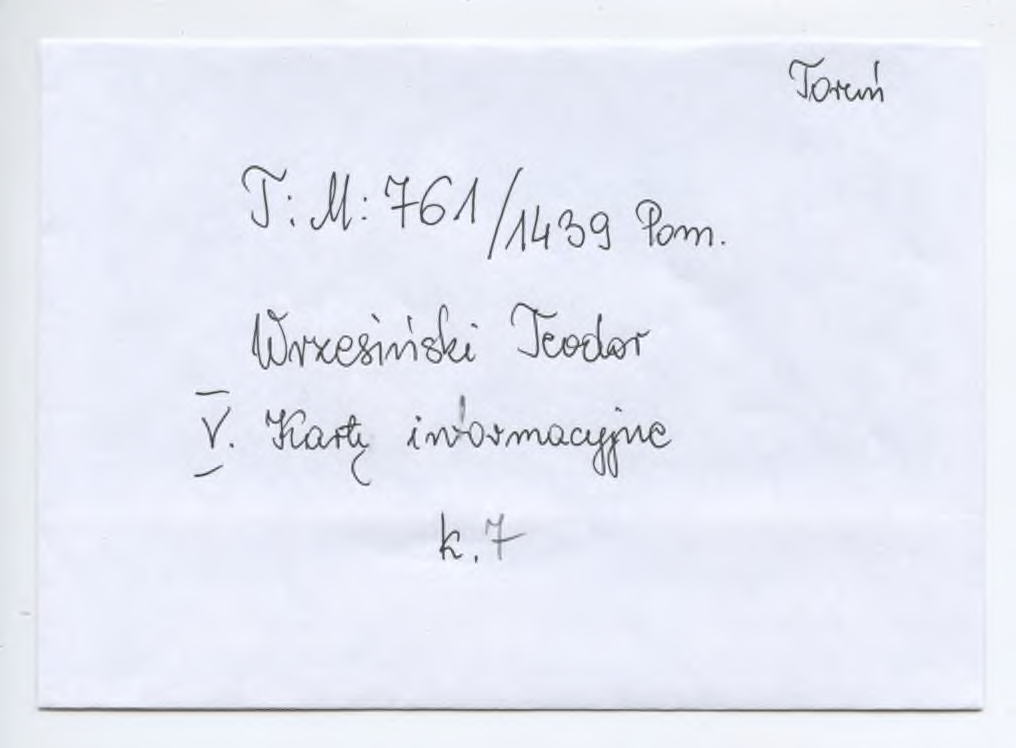 Toruń
T: M: 761/1439 Pom.
Wrzesiński Teodor
V. Karty informacyjne
k. 7